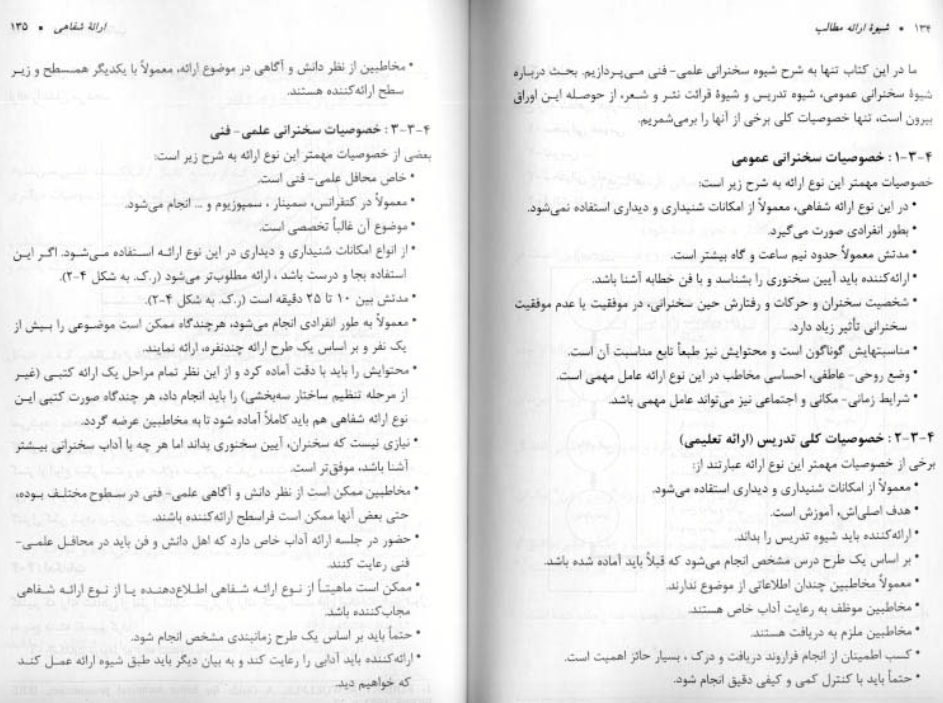 ۱۳۴ • شیوهٔ ارائه مطالب
ما در این کتاب تنها به شرح شیوه سخنرانی علمی- فنی می‌پردازیم. بحث درباره
شیوهٔ سخنرانی عمومی، شیوه تدریس و شیوهٔ قرائت نثر و شعر، از حوصله این اوراق
بیرون است، تنها خصوصیات کلی برخی از آنها را برمی‌شمریم.
۴-۳-۱: خصوصیات سخنرانی عمومی
خصوصیات مهمتر این نوع ارائه به شرح زیر است:
• در این نوع ارائه شفاهی، معمولاً از امکانات شنیداری و دیداری استفاده نمی‌شود.
• بطور انفرادی صورت می‌گیرد.
• مدتش معمولاً حدود نیم ساعت و گاه بیشتر است.
• ارائه‌کننده باید آیین سخنوری را بشناسد و با فن خطابه آشنا باشد.
• شخصیت سخنران و حرکات و رفتارش حین سخنرانی، در موفقیت یا عدم موفقیت
سخنرانی تأثیر زیاد دارد.
• مناسبتهایش گوناگون است و محتوایش نیز طبعاً تابع مناسبت آن است.
• وضع روحی- عاطفی، احساسی مخاطب در این نوع ارائه عامل مهمی است.
• شرایط زمانی- مکانی و اجتماعی نیز می‌تواند عامل مهمی باشد.
۴-۳-۲: خصوصیات کلی تدریس (ارائه تعلیمی)
برخی از خصوصیات مهمتر این نوع ارائه عبارتند از:
• معمولاً از امکانات شنیداری و دیداری استفاده می‌شود.
• هدف اصلی‌اش، آموزش است.
• ارائه‌کننده باید شیوه تدریس را بداند.
• بر اساس یک طرح درس مشخص انجام می‌شود که قبلاً باید آماده شده باشد.
• معمولاً مخاطبین چندان اطلاعاتی از موضوع ندارند.
• مخاطبین موظف به رعایت آداب خاص هستند.
• مخاطبین ملزم به دریافت هستند.
• کسب اطمینان از انجام فراروند دریافت و درک ، بسیار حائز اهمیت است.
• حتماً باید با کنترل کمی و کیفی دقیق انجام شود.
ارائهٔ شفاهی • ۱۳۵
• مخاطبین از نظر دانش و آگاهی در موضوع ارائه، معمولاً با یکدیگر همسطح و زیر
سطح ارائه‌کننده هستند.
۴-۳-۳: خصوصیات سخنرانی علمی- فنی
بعضی از خصوصیات مهمتر این نوع ارائه به شرح زیر است:
• خاص محافل علمی- فنی است.
• معمولاً در کنفرانس، سمینار ، سمپوزیوم و ... انجام می‌شود.
• موضوع آن غالباً تخصصی است.
• از انواع امکانات شنیداری و دیداری در این نوع ارائه استفاده می‌شود. اگر این
استفاده بجا و درست باشد ، ارائه مطلوب‌تر می‌شود (ر.ک. به شکل ۴-۲).
• مدتش بین ۱۰ تا ۲۵ دقیقه است (ر.ک. به شکل ۴-۲).
• معمولاً به طور انفرادی انجام می‌شود، هرچندگاه ممکن است موضوعی را بیش از
یک نفر و بر اساس یک طرح ارائه چندنفره، ارائه نمایند.
• محتوایش را باید با دقت آماده کرد و از این نظر تمام مراحل یک ارائه کتبی (غیر
از مرحله تنظیم ساختار سه‌بخشی) را باید انجام داد، هر چندگاه صورت کتبی این
نوع ارائه شفاهی هم باید کاملاً آماده شود تا به مخاطبین عرضه گردد.
• نیازی نیست که سخنران، آیین سخنوری بداند اما هر چه با آداب سخنرانی بیشتر
آشنا باشد، موفق‌تر است.
• مخاطبین ممکن است از نظر دانش و آگاهی علمی- فنی در سطوح مختلف بوده،
حتی بعض آنها ممکن است فراسطح ارائه‌کننده باشند.
• حضور در جلسه ارائه آداب خاص دارد که اهل دانش و فن باید در محافل علمی-
فنی رعایت کنند.
• ممکن است ماهیتاً از نوع ارائه شفاهی اطلاع‌دهنده یا از نوع ارائه شفاهی
مجاب‌کننده باشد.
• حتماً باید بر اساس یک طرح زمانبندی مشخص انجام شود.
• ارائه‌کننده باید آدابی را رعایت کند و به بیان دیگر باید طبق شیوه ارائه عمل کند
که خواهیم دید.